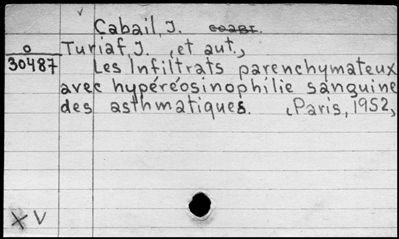 Cabail, J.
o Turiaf, J. , et aut.,
30487 Les Infiltrats parenchymateux
avec hypéréosinophilie sanguine
des asthmatiques. (Paris, 1952,
X V